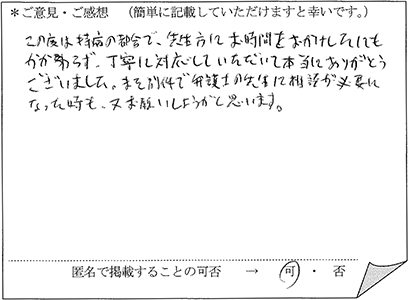 ＊ご意見・ご感想　（簡単に記載していただけますと幸いです。）
この度は持病の都合で、先生方にお時間をおかけしたにも
かかわらず、丁寧に対応していただいて本当にありがとう
ございました。また別件で弁護士の先生に相談が必要に
なった時も、又お願いしようかと思います。
匿名で掲載することの可否　→　可・否